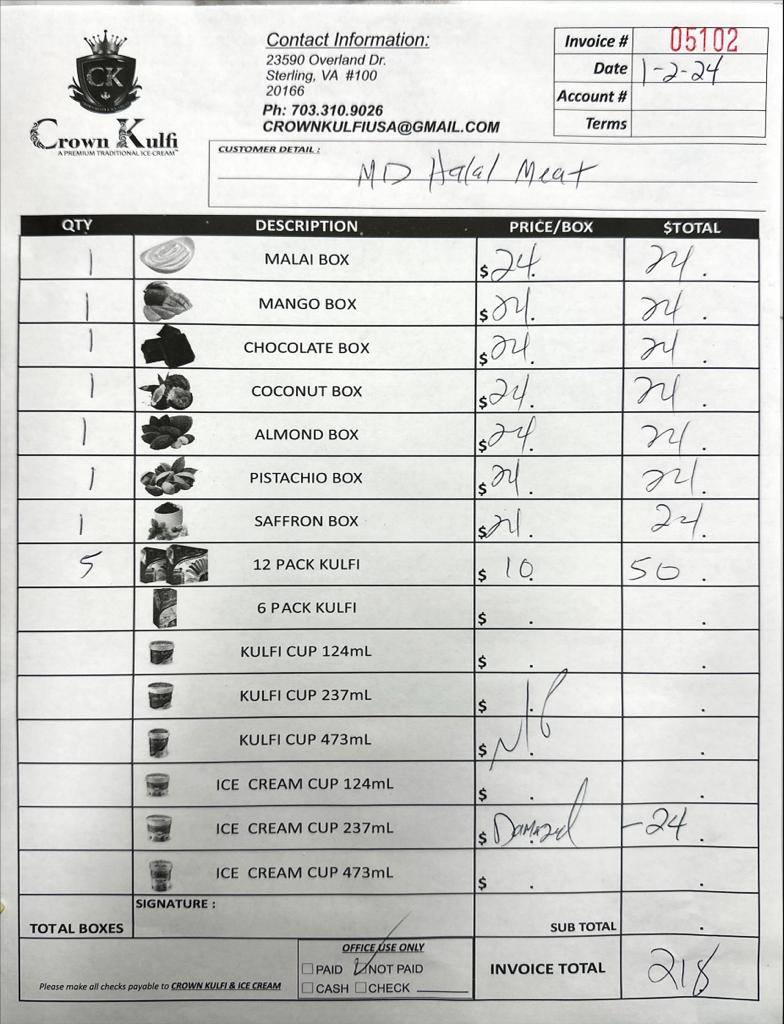 CK
Crown Kulfi
A PREMIUM TRADITIONAL ICE-CREAM™
Contact Information:
23590 Overland Dr.
Sterling, VA #100
20166
Ph: 703.310.9026
CROWNKULFIUSA@GMAIL.COM
Invoice # 05102
Date 1-2-24
Account #
Terms
CUSTOMER DETAIL :
MD Halal Meat
QTY DESCRIPTION PRICE/BOX $TOTAL
1 MALAI BOX $24. 24.
1 MANGO BOX $24. 24.
1 CHOCOLATE BOX $24. 24.
1 COCONUT BOX $24. 24.
1 ALMOND BOX $24. 24.
1 PISTACHIO BOX $24. 24.
1 SAFFRON BOX $24. 24.
5 12 PACK KULFI $ 10. 50.
6 PACK KULFI $ . .
KULFI CUP 124mL $ . .
KULFI CUP 237mL $ . .
KULFI CUP 473mL $ . .
ICE CREAM CUP 124mL $ . .
ICE CREAM CUP 237mL $ Damaged -24.
ICE CREAM CUP 473mL $ . .
SIGNATURE :
TOTAL BOXES SUB TOTAL .
OFFICE USE ONLY
PAID NOT PAID
CASH CHECK
INVOICE TOTAL 218
Please make all checks payable to CROWN KULFI & ICE CREAM